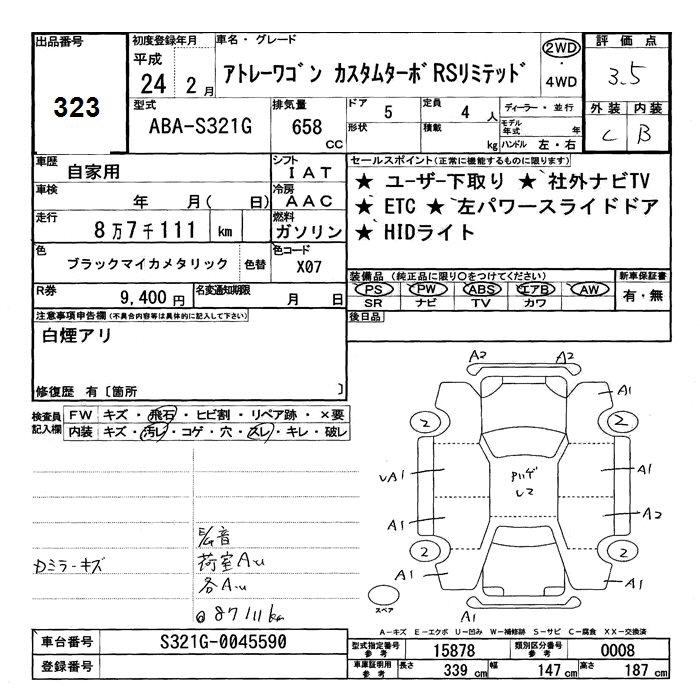 出品番号 323
初度登録年月 平成 24 2月
車名・グレード アトレーワゴン カスタムターボRSリミテッド
2WD・4WD
評価点 3.5
外装 C 内装 B
型式 ABA-S321G
排気量 658 CC
ドア 5
形状
定員 4人
積載 kg
ディーラー・並行
モデル年式 年
ハンドル 左・右
車歴 自家用
シフト IAT
車検 年 月( 日)
冷房 AAC
走行 8万7千111 km
燃料 ガソリン
色 ブラックマイカメタリック 色替
色コード X07
R券 9,400円
名変通知期限 月 日
セールスポイント(正常に機能するものに限ります)
★ ユーザー下取り ★ 社外ナビTV
★ ETC ★ 左パワースライドドア
★ HIDライト
装備品(純正品に限り○をつけてください)
PS PW ABS エアB AW
SR ナビ TV カワ
新車保証書 有・無
後日品
注意事項申告欄(不具合内容等は具体的に記入して下さい)
白煙アリ
修復歴 有〔箇所 〕
検査員記入欄
FW キズ・飛石・ヒビ割・リペア跡・×要
内装 キズ・汚レ・コゲ・穴・スレ・キレ・破レ
E/G音
Dミラーキズ 荷室AU
各AU
@87111km
A2 A2
A1
2 2
UA1 A1
A1 A2
2 2
A1 A1
A1
スペア
A-キズ E-エクボ U-凹み W-補修跡 S-サビ C-腐食 XX-交換済
車台番号 S321G-0045590
登録番号
型式指定番号 参考 15878
類別区分番号 参考 0008
車庫証明用 参考 長さ 339 cm 幅 147 cm 高さ 187 cm